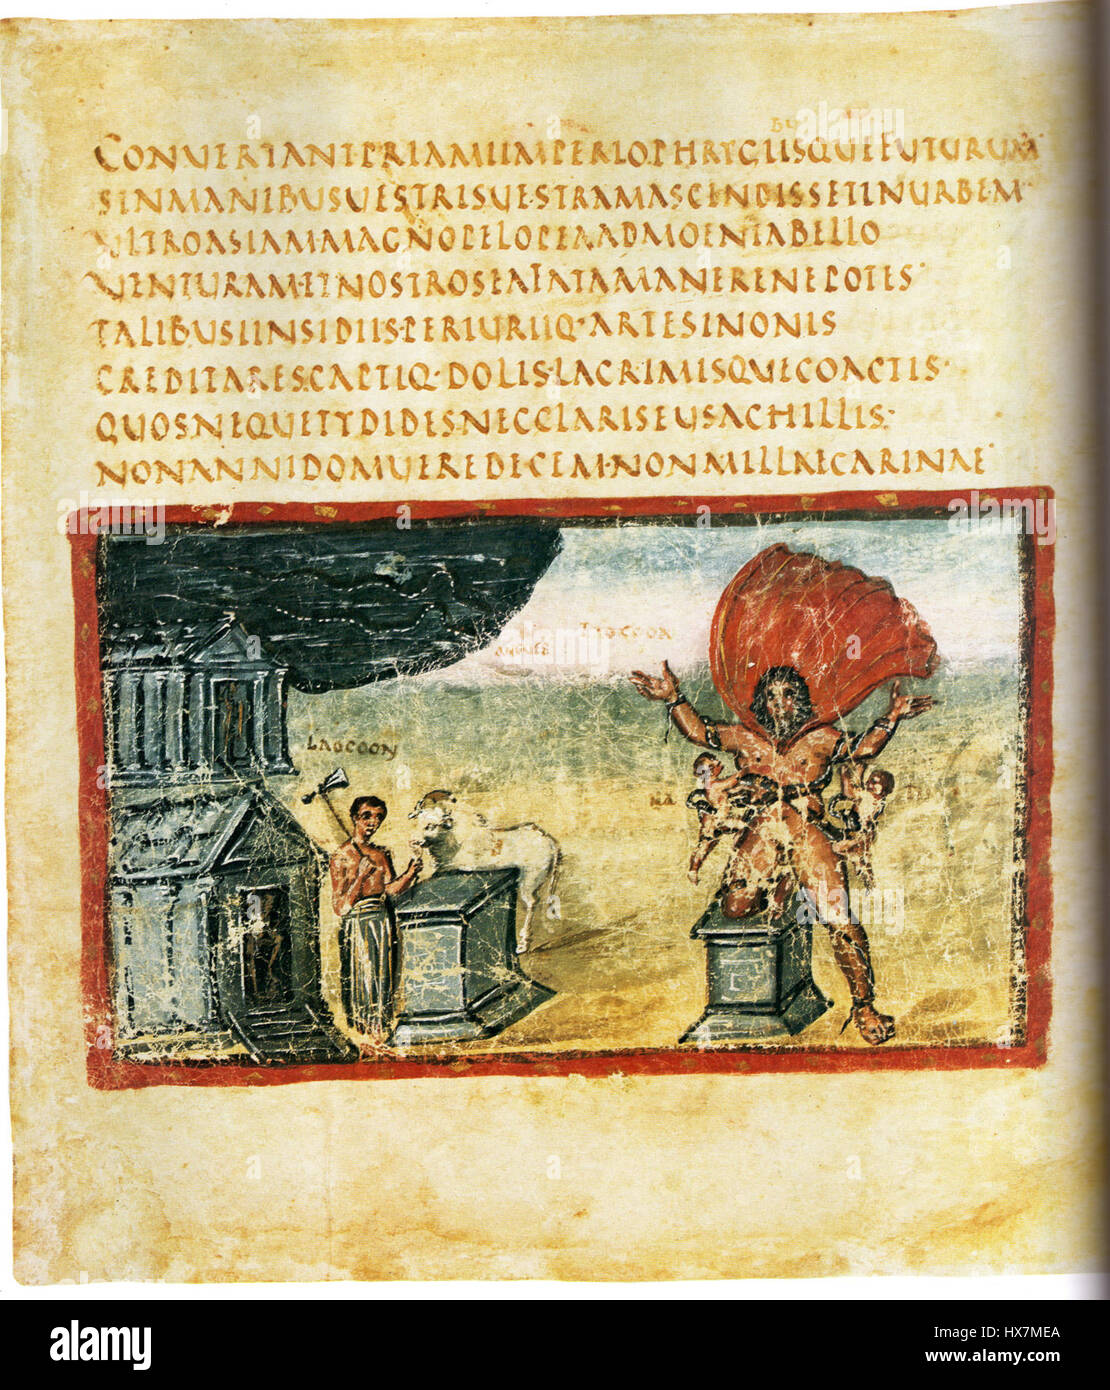 CONUERTANTPRIAMIIMPERIOPHRYGIISQUEFUTURUM
SINMANIBUSUESTRISUESTRAMASCENDISSETINURBEM·
ULTROASIAM·MAGNOPELOPEAADMOENIABELLO
UENTURAM·ETNOSTROSEAFATAMANERENEPOTES·
TALIBUSINSIDIIS·PERIURIIQ·ARTESINONIS
CREDITARES·CAPTIQ·DOLIS·LACRIMISQUECOACTIS·
QUOSNEQUETYDIDESNECCLARISEUSACHILLIS·
NONANNIDOMUEREDECEM·NONMILLAECARINAE·
LAOCOON
LAOCOON
NA
alamy
alamy
Image ID: HX7MEA
www.alamy.com